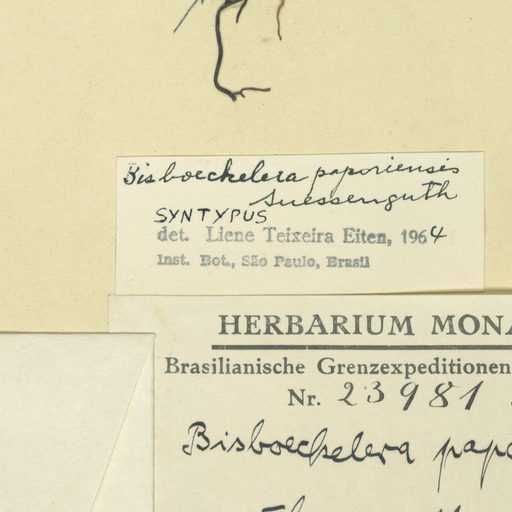 Bisboeckelera paporiensis
Suessenguth
SYNTYPUS
det. Liene Teixeira Eiten, 1964
Inst. Bot., São Paulo, Brasil
HERBARIUM MONA
Brasilianische Grenzexpeditionen
Nr. 23981
Bisboeckelera papo